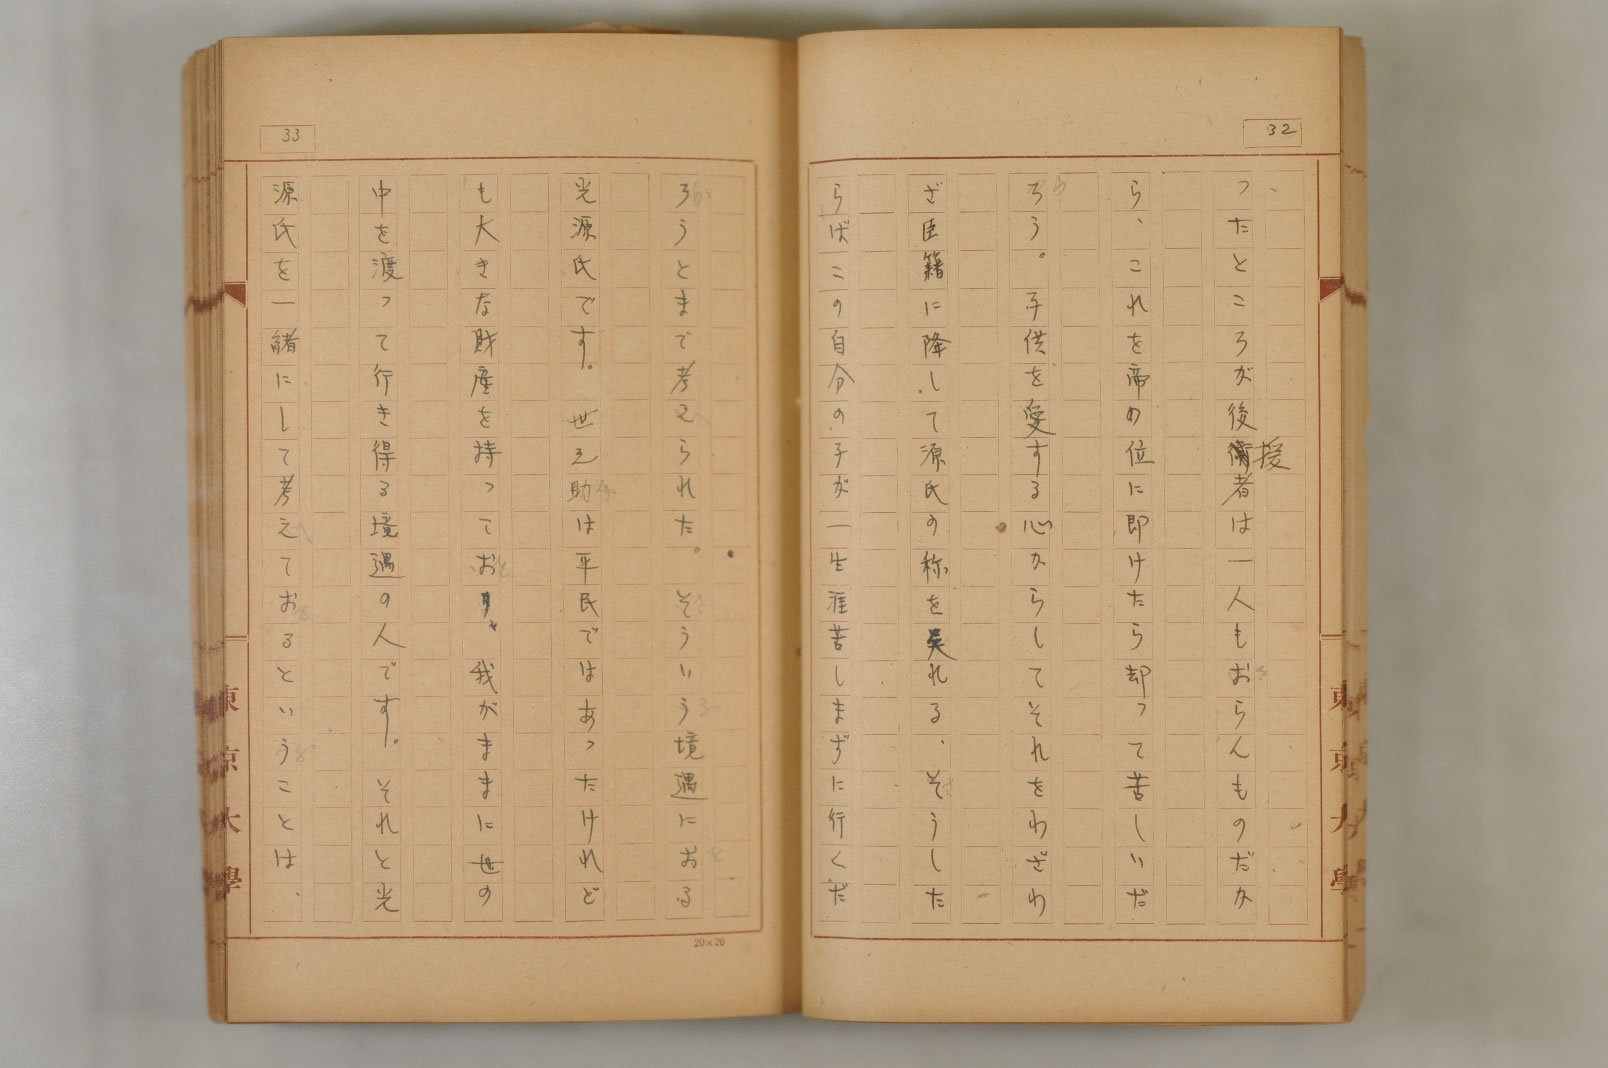 32
ったところが後援者は一人もおらんものだか
ら、これを帝の位に即けたら却って苦しいだ
ろう。子供を愛する心からしてそれをわざわ
ざ臣籍に降して源氏の称を呉れる、そうした
らばこの自分の子が一生涯苦しまずに行くだ
東京大學
33
ろうとまで考えられた。そういう境遇におる
光源氏です。世之助は平民ではあったけれど
も大きな財産を持っており、我がままに世の
中を渡って行き得る境遇の人です。それと光
源氏を一緒にして考えておるということは、
東京大學
20×20